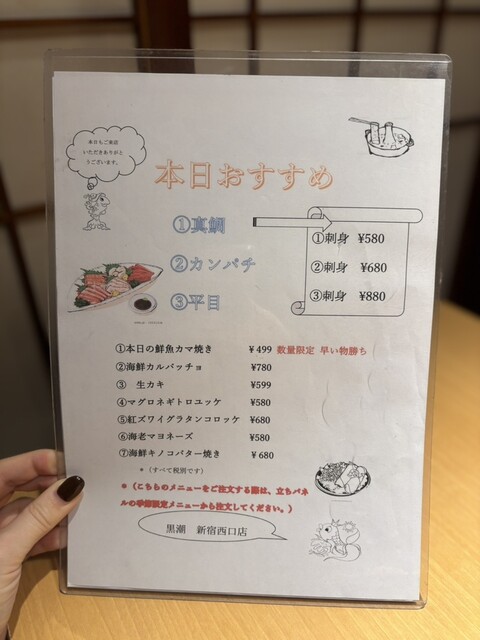 本日もご来店
いただきありがと
うございます。
本日おすすめ
①真鯛
②カンパチ
③平目
①刺身 ¥580
②刺身 ¥680
③刺身 ¥880
①本日の鮮魚カマ焼き ¥499 数量限定 早い物勝ち
②海鮮カルパッチョ ¥780
③ 生カキ ¥599
④マグロネギトロユッケ ¥580
⑤紅ズワイグラタンコロッケ ¥680
⑥海老マヨネーズ ¥580
⑦海鮮キノコバター焼き ¥680
*（すべて税別です）
*（こちらのメニューをご注文する際は、立ちパネ
ルの季節限定メニューから注文してください。）
黒潮 新宿西口店